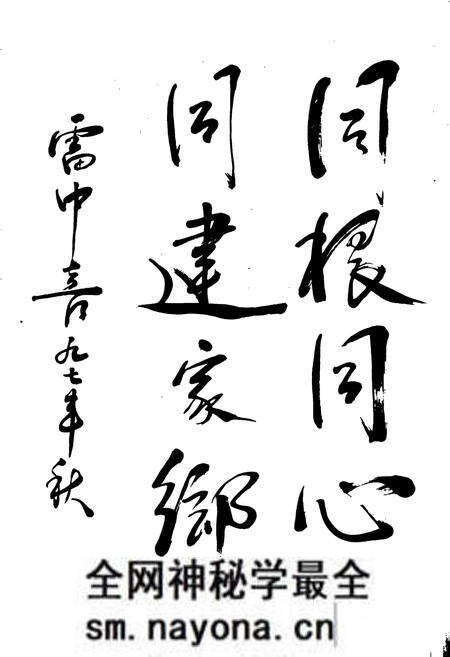 同根同心
同建家鄉
雷中喜九七年秋
全网神秘学最全
sm.nayona.cn